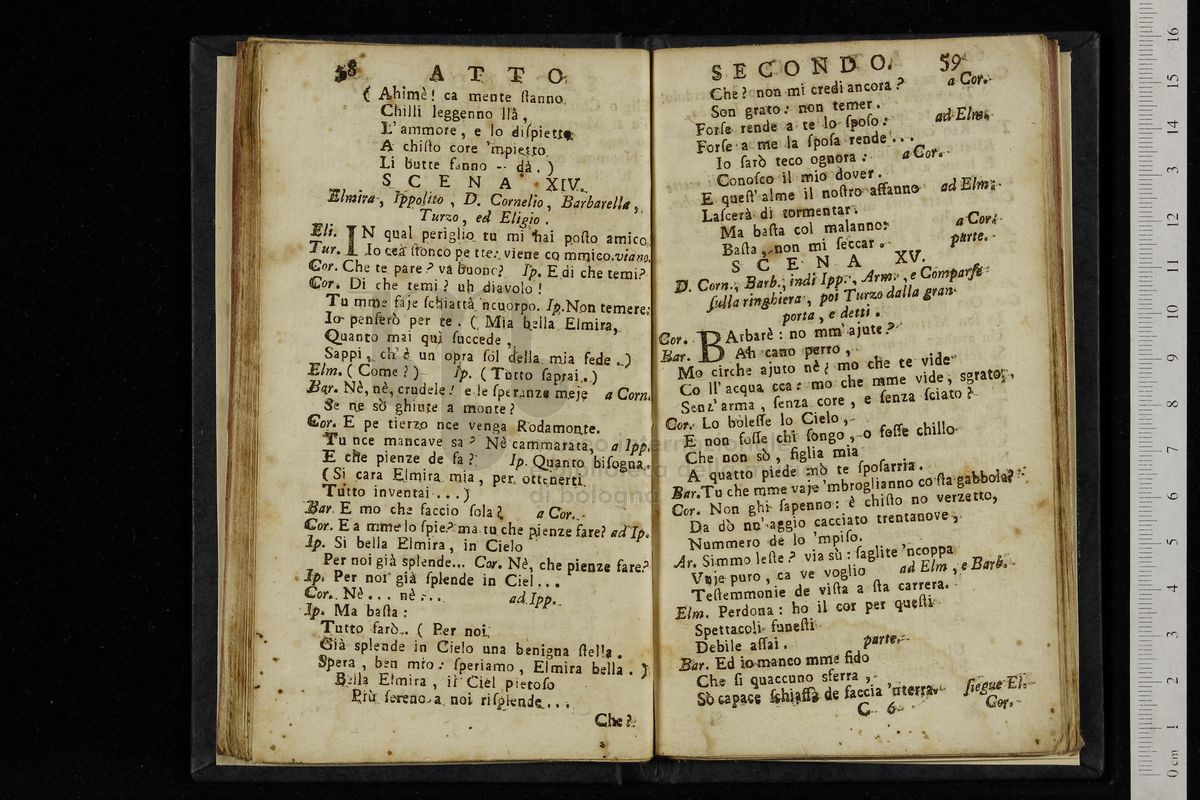 58 ATTO
( Ahimè! ca mente ſtanno
Chilli leggenno llà,
L'ammore, e lo diſpietto
A chiſto core 'mpietto
Li butte fanno -- dà. )
SCENA XIV.
Elmira, Ippolito, D. Cornelio, Barbarella,
Turzo, ed Eligio.
Eli. IN qual periglio tu mi hai poſto amico
Tur. Io cca ſtonco pe tte: viene co mmico. viano.
Cor. Che te pare? va buono? Ip. E di che temi?
Cor. Di che temi? uh diavolo!
Tu mme faje ſchiattà 'ncuorpo. Ip. Non temere:
Io penſerò per te. ( Mia bella Elmira,
Quanto mai qui ſuccede,
Sappi, ch'è un opra ſol della mia fede. )
Elm. ( Come? ) Ip. ( Tutto ſaprai. )
Bar. Nè, nè, crudele! e le ſperanze meje a Corn.
Se ne sò ghiute a monte?
Cor. E pe tierzo nce venga Rodamonte.
Tu nce mancave sa? Nè cammarata, a Ipp.
E che pienze de fa? Ip. Quanto biſogna.
( Si cara Elmira mia, per ottenerti
Tutto inventai ... )
Bar. E mo che faccio ſola? a Cor.
Cor. E a mme lo ſpie? ma tu che pienze fare? ad Ip.
Ip. Si bella Elmira, in Cielo
Per noi già splende... Cor. Nè, che pienze fare?
Ip. Per noi già splende in Ciel...
Cor. Nè... nè... ad Ipp.
Ip. Ma baſta:
Tutto farò. ( Per noi
Già splende in Cielo una benigna ſtella.
Spera, ben mio: ſperiamo, Elmira bella. )
Bella Elmira, il Ciel pietoſo
Più ſereno a noi riſplende...
Che?
SECONDO. 59
Che? non mi credi ancora? a Cor.
Son grato: non temer.
Forſe rende a te lo ſpoſo: ad Elm.
Forſe a me la ſpoſa rende...
Io farò teco ognora: a Cor.
Conoſco il mio dover.
E queſt'alme il noſtro affanno ad Elm.
Laſcerà di tormentar.
Ma baſta col malanno: a Cor.
Baſta, non mi ſeccar. parte.
SCENA XV.
D. Corn., Barb., indi Ipp., Arm., e Comparſe
ſulla ringhiera, poi Turzo dalla gran
porta, e detti.
Cor. BArbarè: no mm'ajute?
Bar. Ah cano perro,
Mo cirche ajuto nè? mo che te vide
Co ll'acqua cca: mo che mme vide, sgrato,
Senz'arma, ſenza core, e ſenza ſciato?
Cor. Lo boleſſe lo Cielo,
E non foſſe chi ſongo, o foſſe chillo
Che non sò, figlia mia
A quatto piede mò te ſpoſarria.
Bar. Tu che mme vaje 'mbroglianno co ſta gabbola?
Cor. Non ghi ſapenno: è chiſto no verzetto,
Da dò nn'aggio cacciato trentanove,
Nummero de lo 'mpiſo.
Ar. Simmo leſte? via sù: ſaglite 'ncoppa
Vuje puro, ca ve voglio ad Elm, e Barb.
Teſtemmonie de viſta a ſta carrera.
Elm. Perdona: ho il cor per queſti
Spettacoli funeſti
Debile aſſai. parte.
Bar. Ed io manco mme fido
Che ſi quaccuno sferra,
Sò capace ſchiaffà de faccia 'nterra. ſiegue El.
C 6 Cor.